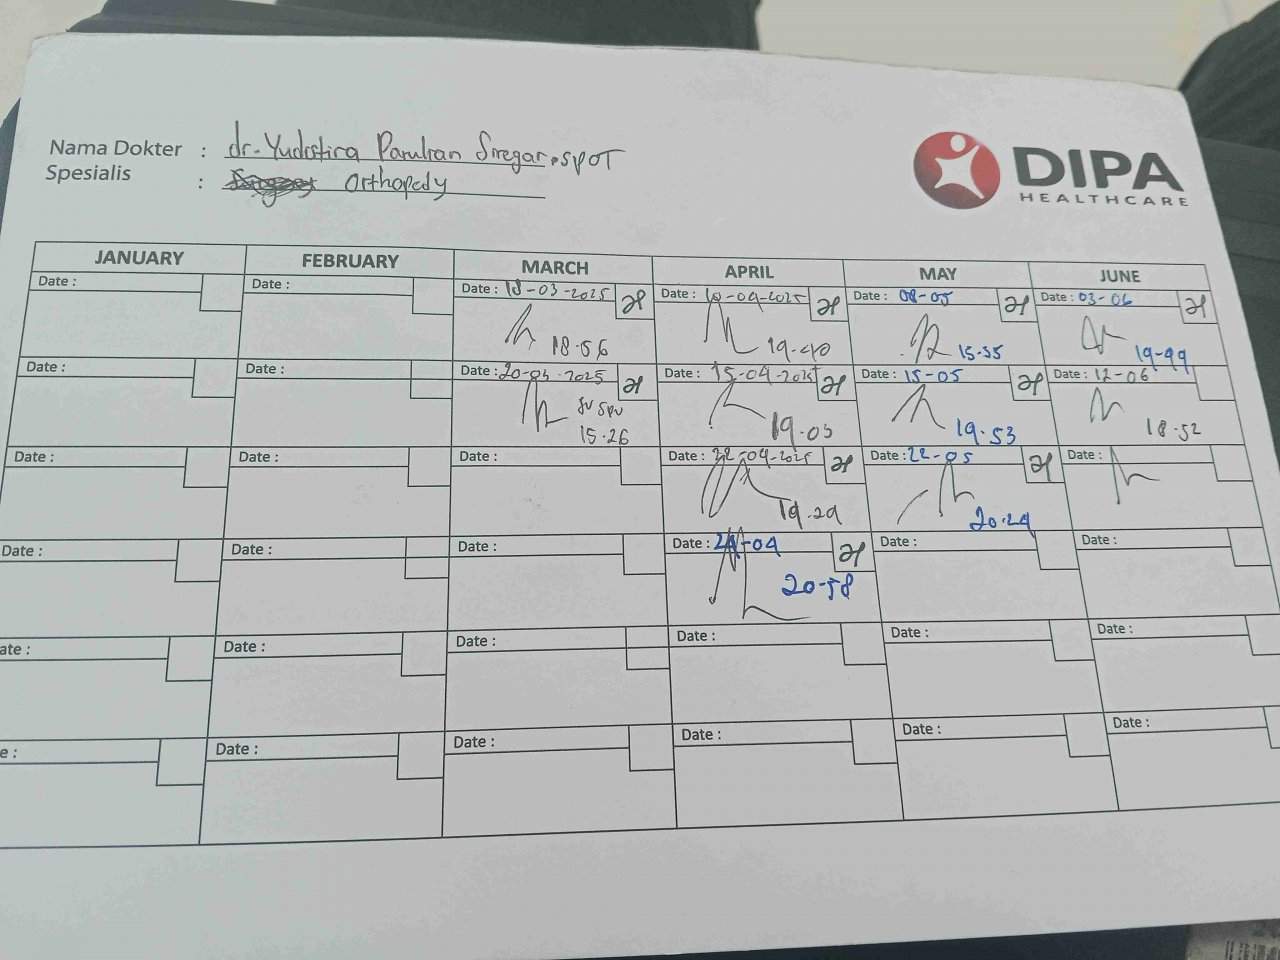 Nama Dokter : dr. Yudistira Panuhan Siregar, SPOT
Spesialis : Orthopedy
DIPA
HEALTHCARE
JANUARY FEBRUARY MARCH APRIL MAY JUNE
Date : Date : Date : 18-03-2025 Date : 10-04-2025 Date : 08-05 Date : 03-06
18.56 19.40 15.55
Date : Date : Date : 20-03-2025 Date : 15-04-2025 Date : 15-05 Date : 12-06
15.26 19.03 19.53 18.52
Date : Date : Date : Date : 22-04-2025 Date : 22-05 Date :
19.29 20.24
Date : Date : Date : Date : 24-04 Date : Date :
20-58
ate : Date : Date : Date : Date : Date :
e : Date : Date : Date : Date : Date :